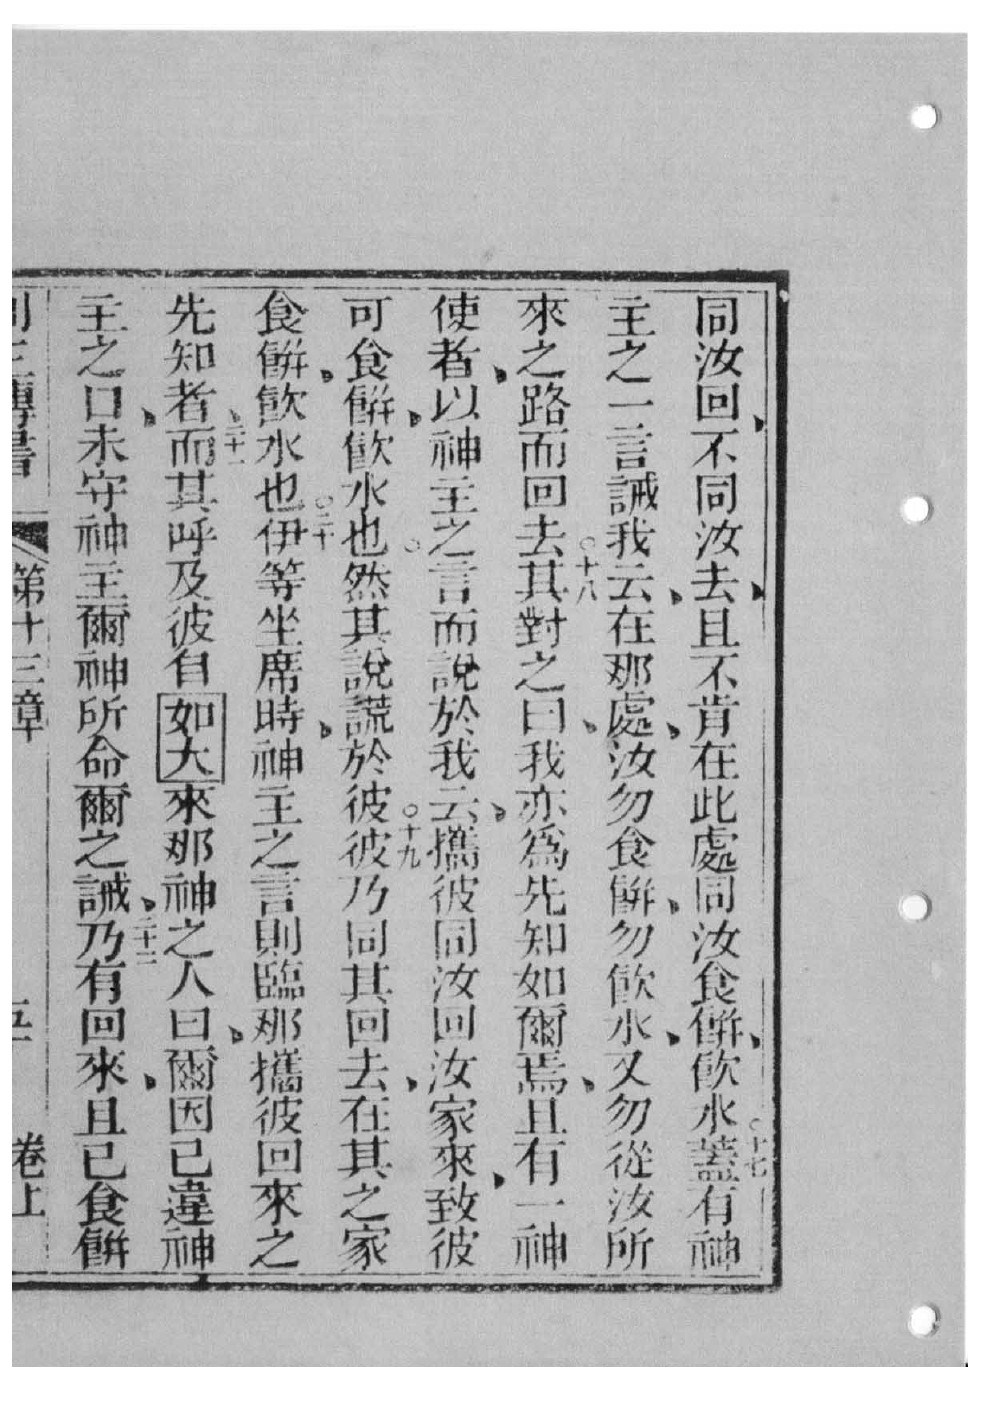 同汝回不同汝去且不肯在此處同汝食餅飲水○十七蓋有神
主之一言誡我云在那處汝勿食餅勿飲水又勿從汝所
來之路而回去○十八其對之曰我亦為先知如爾焉且有一神
使者以神主之言而說於我云攜彼同汝回汝家來致彼
可食餅飲水也○然其說謊於彼○十九彼乃同其回去在其之家
食餅飲水也○二十伊等坐席時神主之言則臨那攜彼回來之
先知者二十一而其呼及彼自如大來那神之人曰爾因已違神
主之口未守神主爾神所命爾之誡二十二乃有回來且已食餅
列王傳書 第十三章 五 卷上